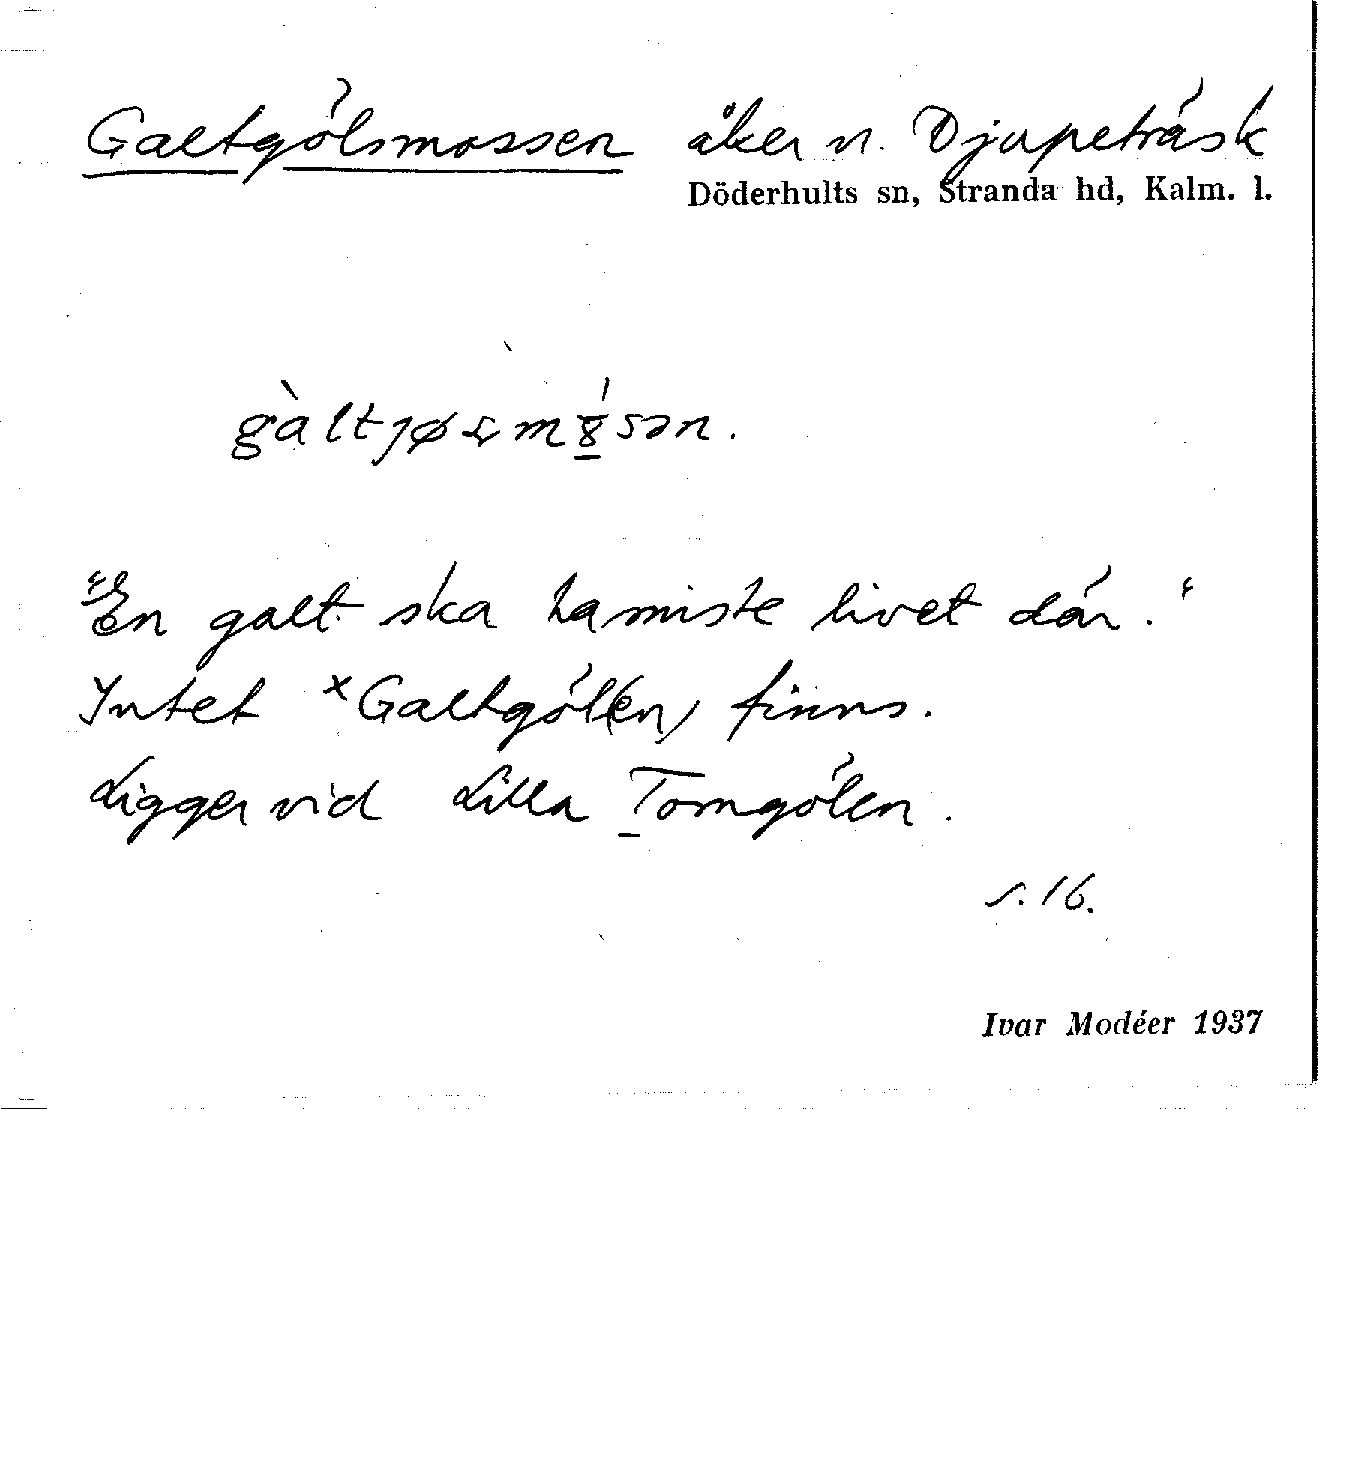 Galtgölsmossen åker n. Djupeträsk
Döderhults sn, Stranda hd, Kalm. l.
"En galt ska ha miste livet där."
Intet ×Galtgöl(en) finns.
Ligger vid Lilla Torngölen.
s. 16.
Ivar Modéer 1937